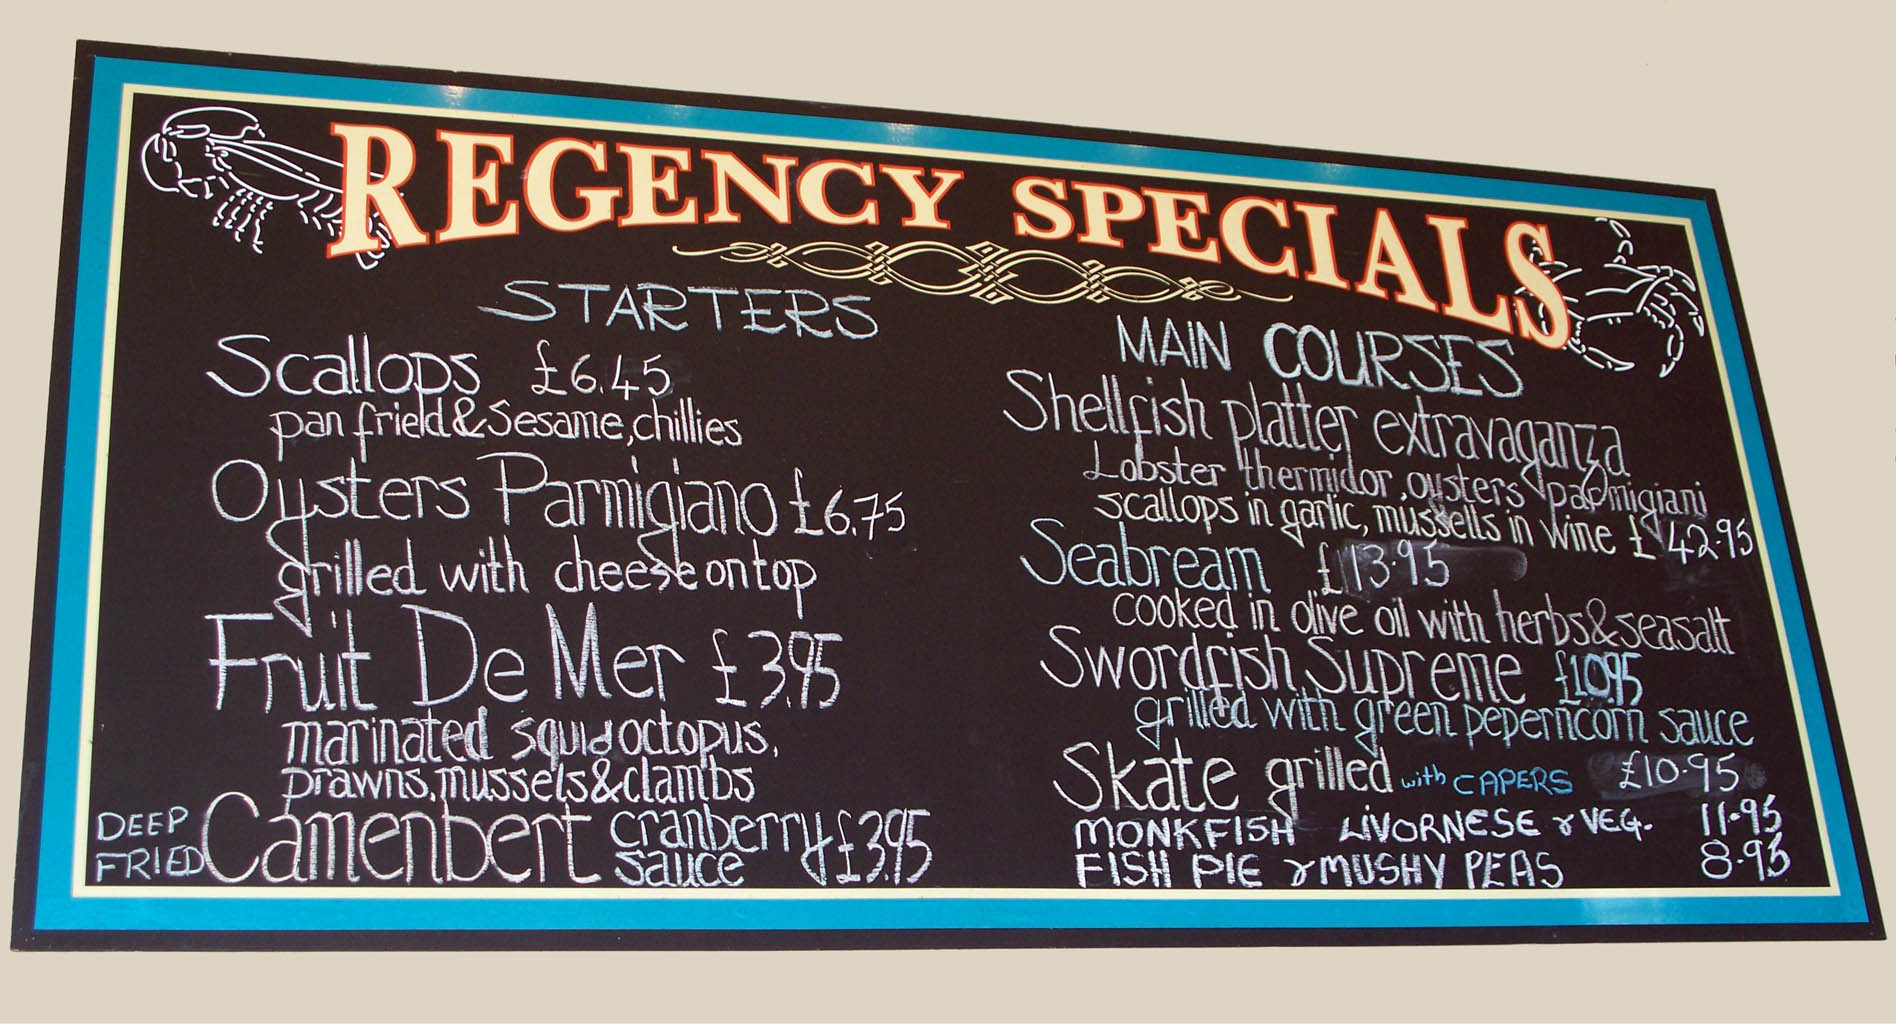 REGENCY SPECIALS
STARTERS
Scallops £6.45
pan frield & Sesame, chillies
Oysters Parmigiano £6.75
grilled with cheese on top
Fruit De Mer £3.95
marinated squid octopus,
prawns, mussels & clambs
DEEP FRIED Camenbert cranberry sauce £3.95
MAIN COURSES
Shellfish platter extravaganza
Lobster thermidor, oysters parmigiani
scallops in garlic, mussells in wine £42.95
Seabream £13.95
cooked in olive oil with herbs & seasalt
Swordfish Supreme £10.95
grilled with green peperncorn sauce
Skate grilled with CAPERS £10.95
MONKFISH LIVORNESE & VEG. 11.95
FISH PIE & MUSHY PEAS 8.95